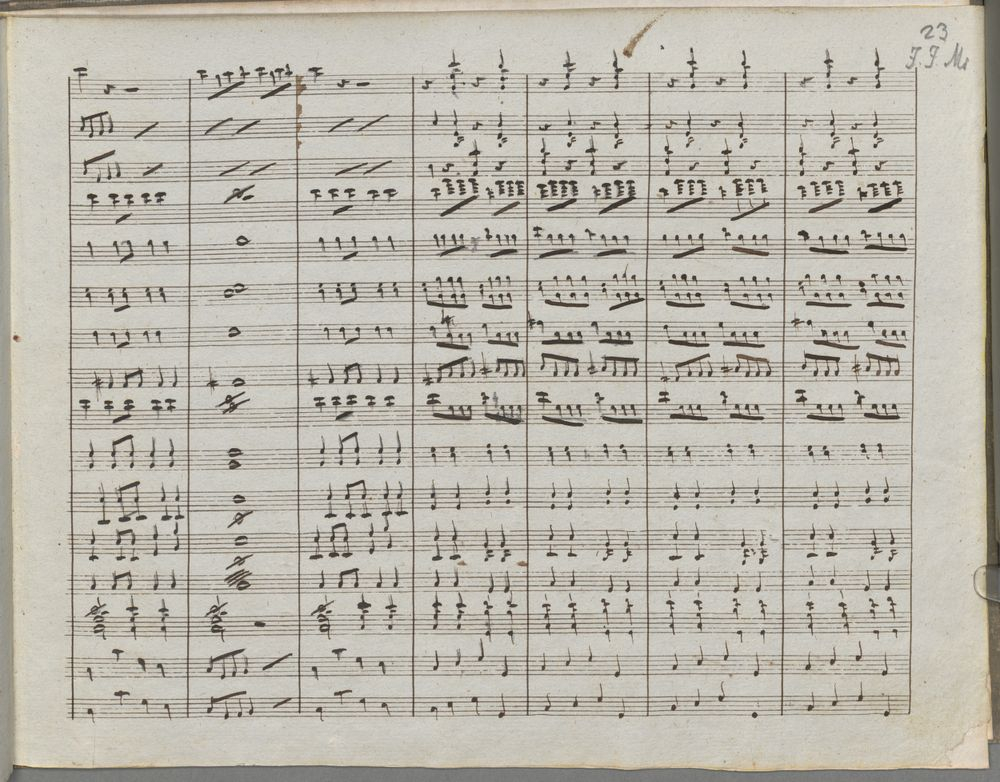 23
J. J. M.